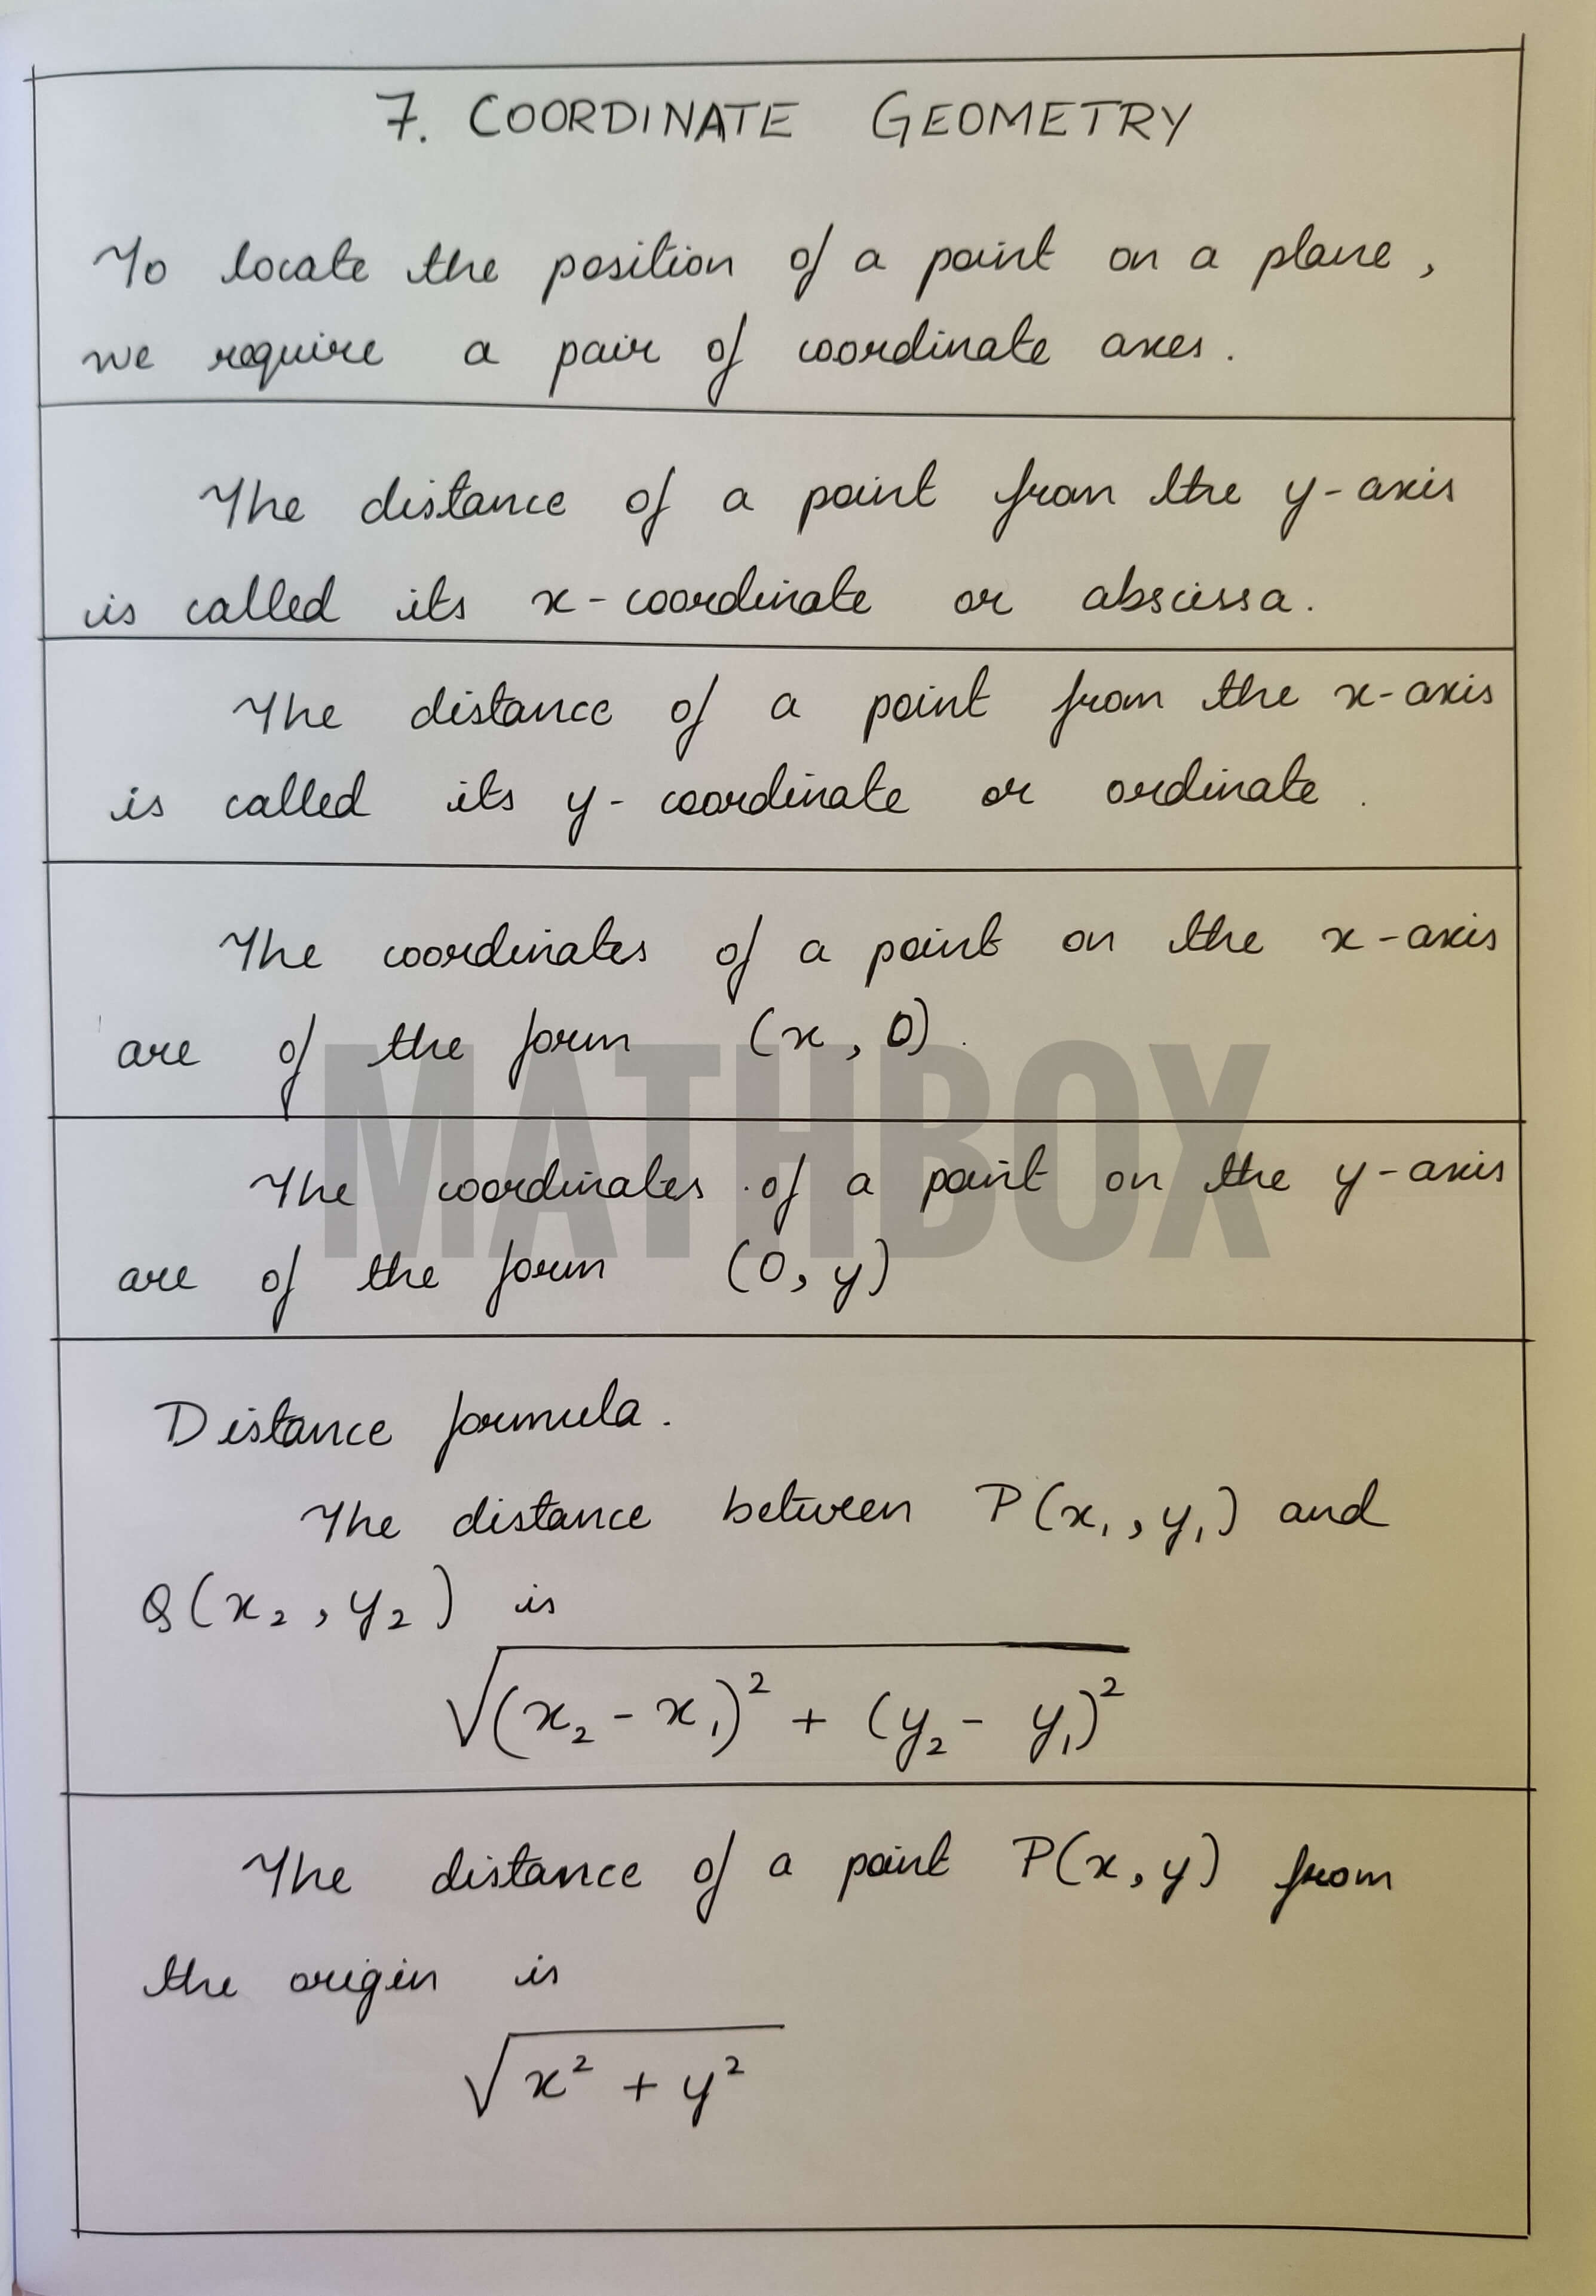 7. COORDINATE GEOMETRY
To locate the position of a point on a plane,
we require a pair of coordinate axes.
The distance of a point from the y-axis
is called its x-coordinate or abscissa.
The distance of a point from the x-axis
is called its y-coordinate or ordinate.
The coordinates of a point on the x-axis
are of the form (x, 0).
MATHBOX
The coordinates of a point on the y-axis
are of the form (0, y)
Distance formula.
The distance between P(x₁, y₁) and
Q(x₂, y₂) is
√(x₂ - x₁)² + (y₂ - y₁)²
The distance of a point P(x, y) from
the origin is
√x² + y²